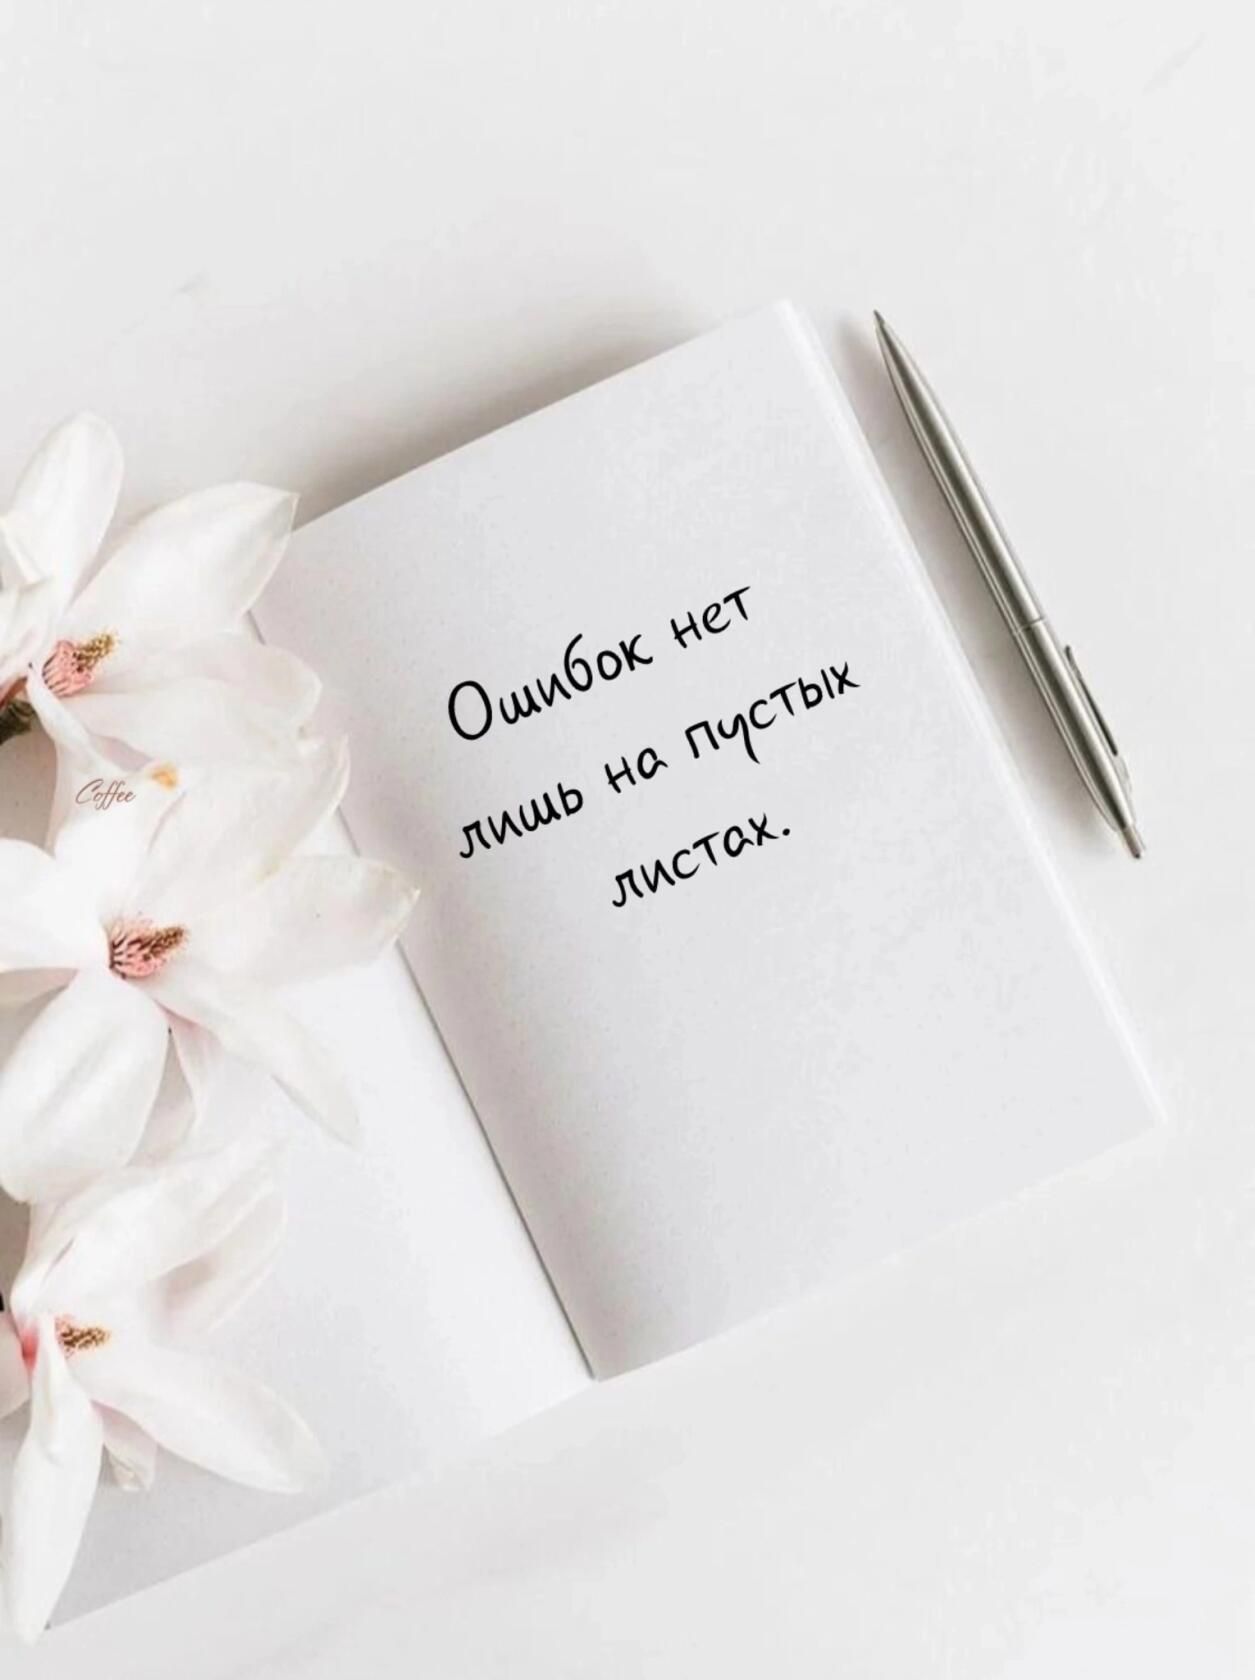 Ошибок нет
лишь на пустых
листах.
Coffee